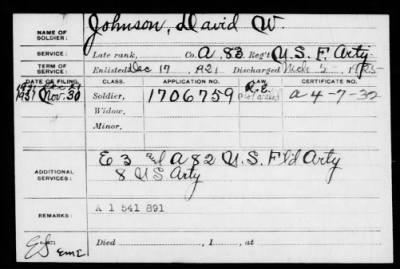 NAME OF SOLDIER: Johnson, David W.
SERVICE: Late rank, Co. A, 83 Reg't U.S. F. Arty
TERM OF SERVICE: Enlisted Dec 17, 1921 Discharged
DATE OF FILING. CLASS. APPLICATION NO. LAW. CERTIFICATE NO.
1931 Nov. 30 Soldier, 1706759 R.E. A 4-7-32
Widow,
Minor,
ADDITIONAL SERVICES: E 3 and A 82 U.S. Fld Arty
8 U.S. Arty
REMARKS: A 1 541 891
Died , 1 , at
EME